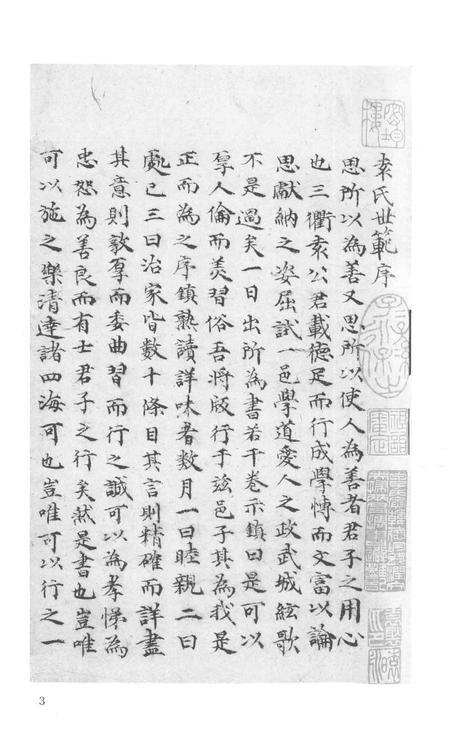 袁氏世範序
思所以為善又思所以使人為善者君子之用心
也三衢袁公君載德足而行成學博而文富以論
思獻納之姿屈試一邑學道愛人之政武城絃歌
不是過矣一日出所為書若干卷示鎮曰是可以
厚人倫而美習俗吾將版行于茲邑子其為我是
正而為之序鎮熟讀詳味者數月一曰睦親二曰
處己三曰治家皆數十條目其言則精確而詳盡
其意則敦厚而委曲習而行之誠可以為孝悌為
忠恕為善良而有士君子之行矣然是書也豈唯
可以施之樂清達諸四海可也豈唯可以行之一
3